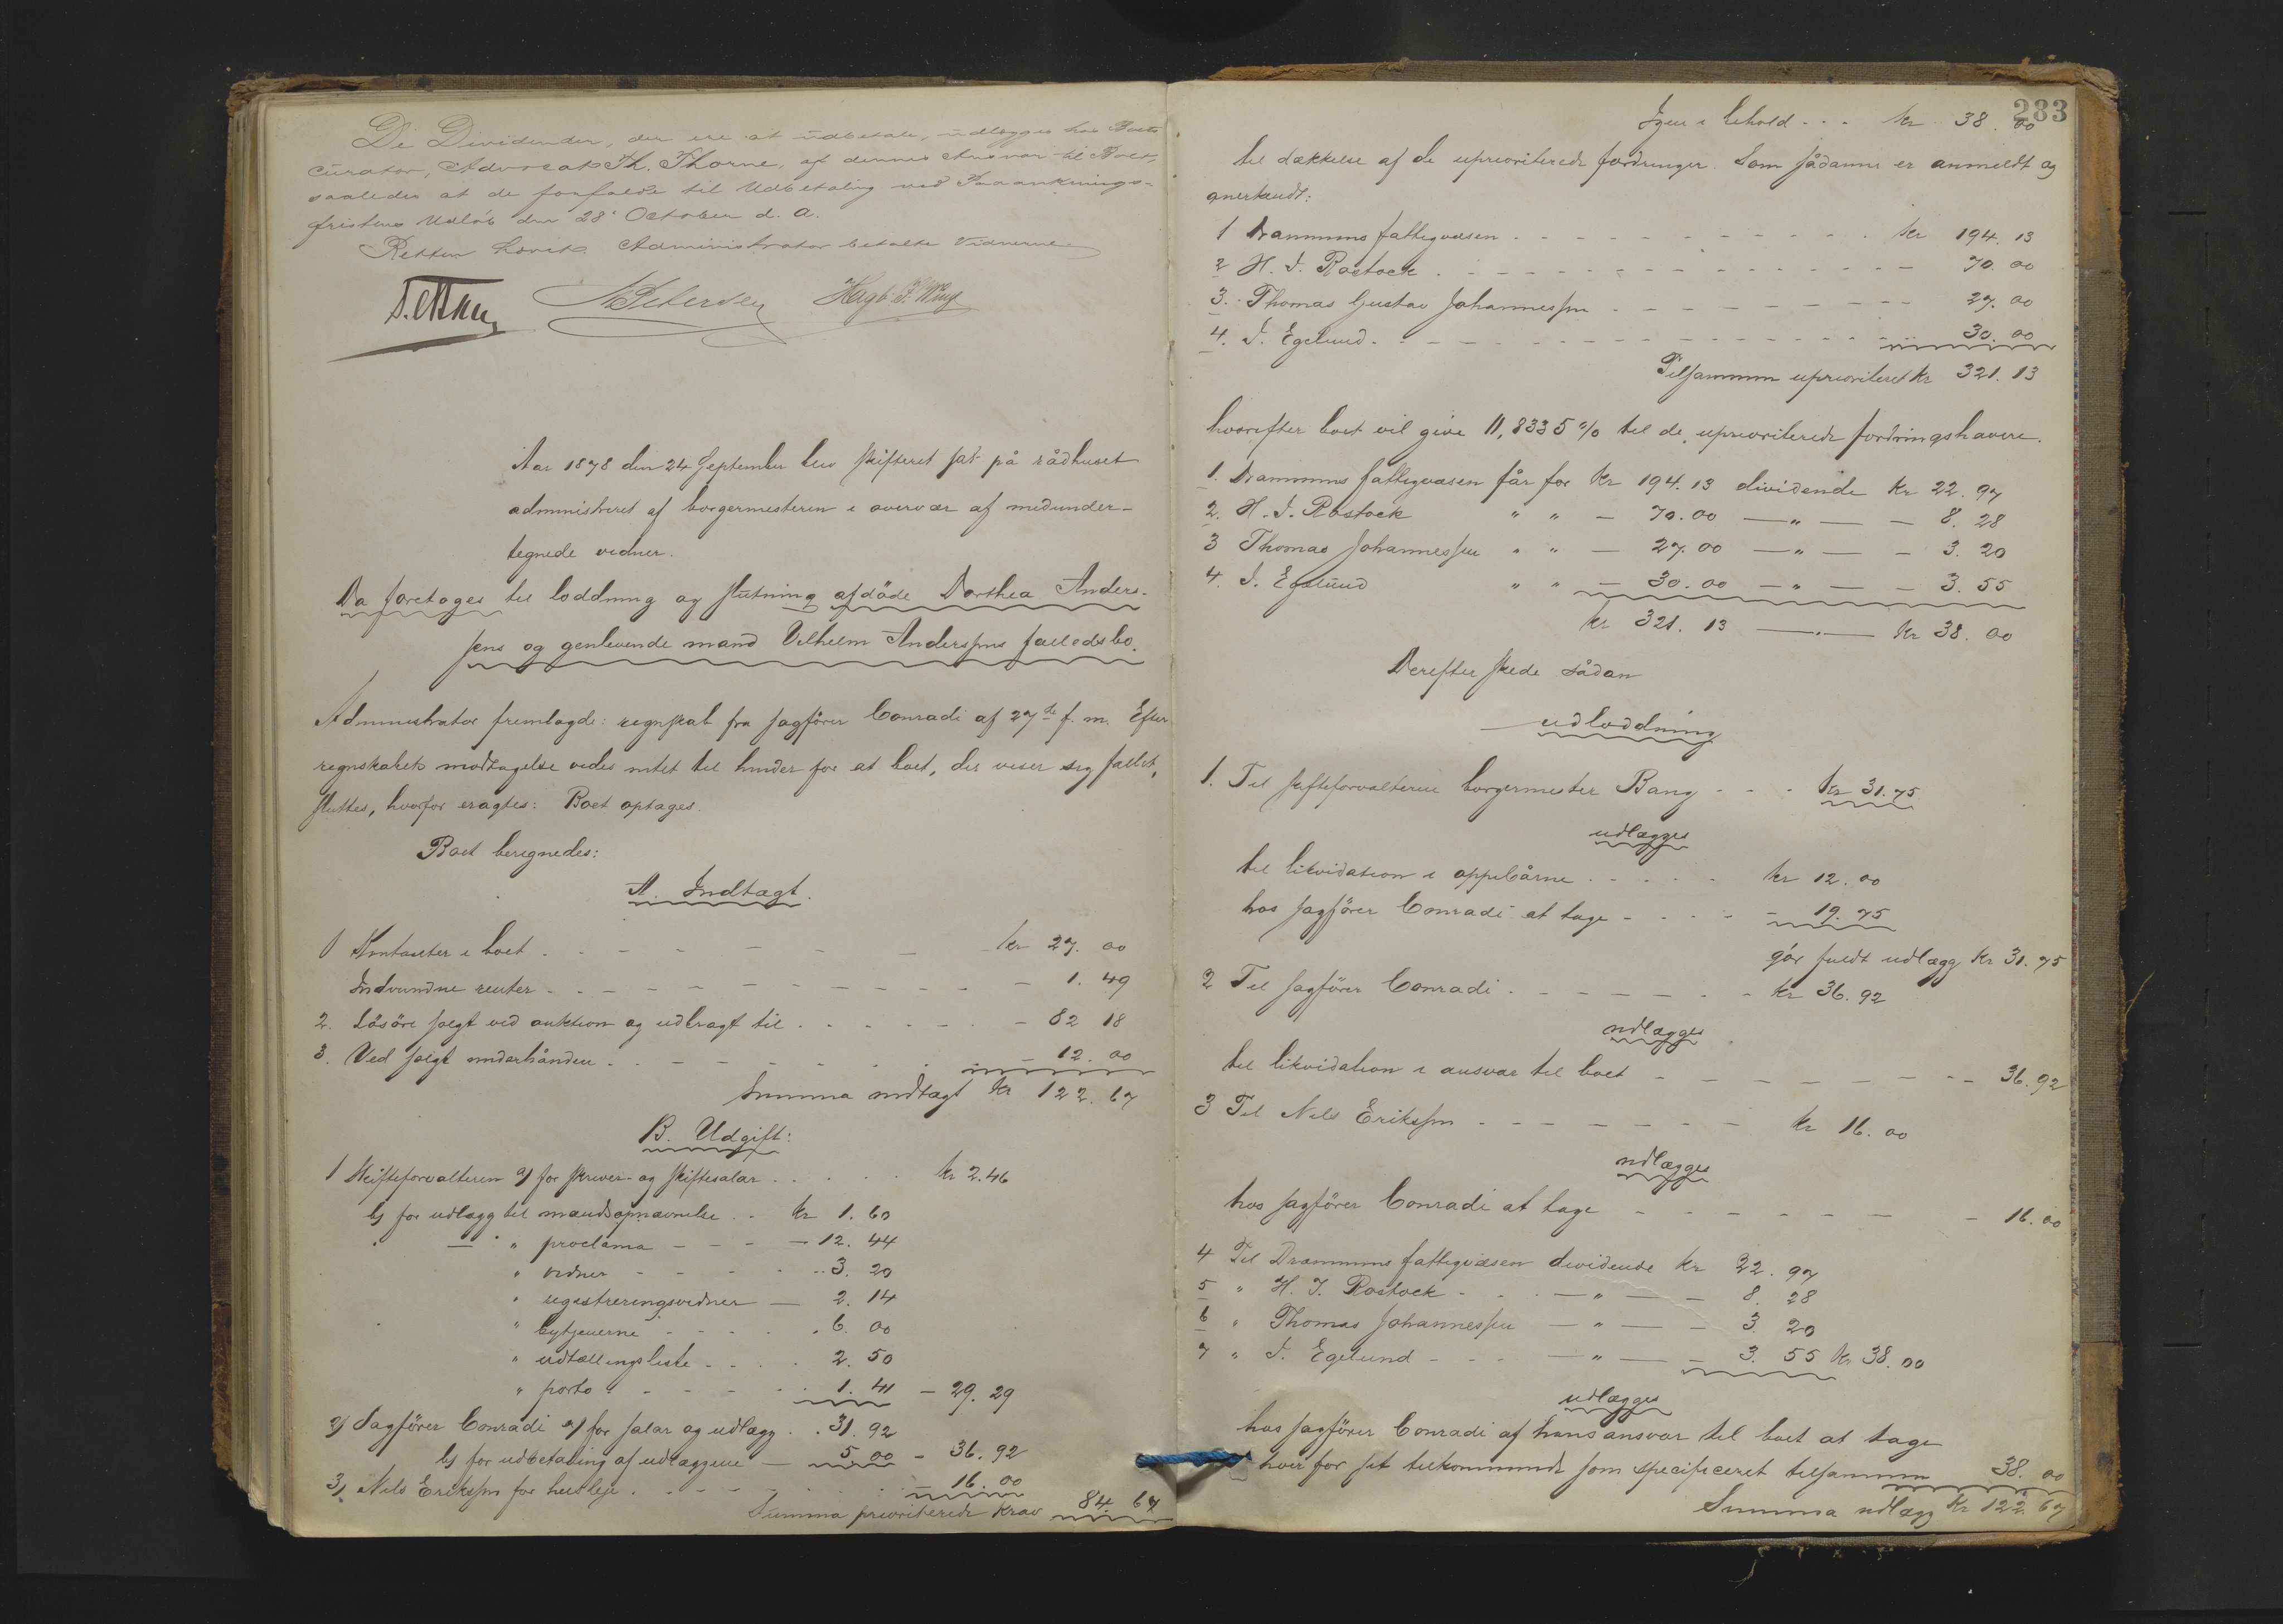 De Dividender, der ere at udbetale, udlægges hos Boets
Curator, Advocat Th. Thorne, af dennes Ansvar til Boet,
saaledes at de forfalde til Udbetaling ved Paaanknings-
fristens Udløb den 28' October d. A.
Retten hævet. Administrator betalte Vidnerne.
N Petersen Hagb. F. Wing
Aar 1878 den 24 September blev skifteret sat på rådhuset
administreret af borgermesteren i overvær af medunder-
tegnede vidner.
Da foretoges til loddning og slutning afdöde Dorthea Anders-
sens og genlevende mand Vilhelm Anderssens fælledsbo.
Administrator fremlagde: regnskab fra sagförer Conradi af 27de f. m. Efter
regnskabets modtagelse vides intet til hinder for at boet, der viser sig fallit,
sluttes, hvorfor eragtes: Boet optages.
Boet beregnedes:
A. Indtægt.
1 Kontanter i boet . - - - kr 27. 00
Indvundne renter - - - - 1. 49
2. Lösöre solgt ved auktion og udbragt til . . . - 82 18
3. Ved solgt underhånden . - - - 12. 00
Summa indtægt kr 122. 67
B. Udgift:
1 Skifteforvalteren a) for skriver- og skiftesalær . . . kr 2.46
b) for udlæg til mandsopnævnelse . . kr 1. 60
— " proclama - - - 12. 44
" vidner - - - 3. 20
" registreringsvidner — 2. 14
" bytjenerne - - - 6. 00
" udtællingsliste - . . 2. 50
" porto - - - 1. 41 - 29. 29
2) Sagförer Conradi a) for salær og udlæg . . 31. 92
b) for udbetaling af udlæggene — 5. 00 - 36. 92
3) Nils Erikssen for husleje . - - - 16. 00
Summa prioriterede krav 84. 67
283
Igen i behold - - - kr 38. 00
til dækkelse af de uprioriterede fordringer. Som sådanne er anmeldt og
anerkendt:
1 Drammens fattigvæsen . - - - kr 194. 13
2 H. J. Rostock . - - - 70. 00
3. Thomas Gustav Johannessen . - - - 27. 00
4. J. Egelund . - - - 30. 00
Tilsammen uprioriteret kr 321. 13
hvorefter boet vil give 11,8335 % til de uprioriterede fordringshavere.
1. Drammens fattigvæsen får for kr 194. 13 dividende kr 22. 97
2. H. J. Rostock " " — 70.00 — " — - 8. 28
3 Thomas Johannessen " " — 27.00 — " — - 3. 20
4. J. Egelund " " — 30.00 — " — - 3. 55
kr 321. 13 — " — kr 38. 00
Derefter skede sådan
udloddning
1. Til skifteforvalteren borgermester Bang - - - kr 31.75
udlægges
til likvidation i oppebårne . - - - kr 12. 00
hos sagförer Conradi at tage - - - 19. 75
gör fuldt udlæg kr 31. 75
2 Til sagförer Conradi . - - - kr 36. 92
udlægges
til likvidation i ansvar til boet - - - 36. 92
3 Til Nils Erikssen - - - kr 16. 00
udlægges
hos sagförer Conradi at tage - - - 16. 00
4 Til Drammens fattigvæsen dividende kr 22. 97
5 " H. J. Rostock - . . — " — - 8. 28
6 " Thomas Johannessen — " — - 3. 20
7 " J. Egelund - - - — " — - 3. 55 kr 38. 00
udlægges
hos sagförer Conradi af hans ansvar til boet at tage
hver for sit tilkommende som specificeret tilsammen 38. 00
Summa udlæg kr 122. 67